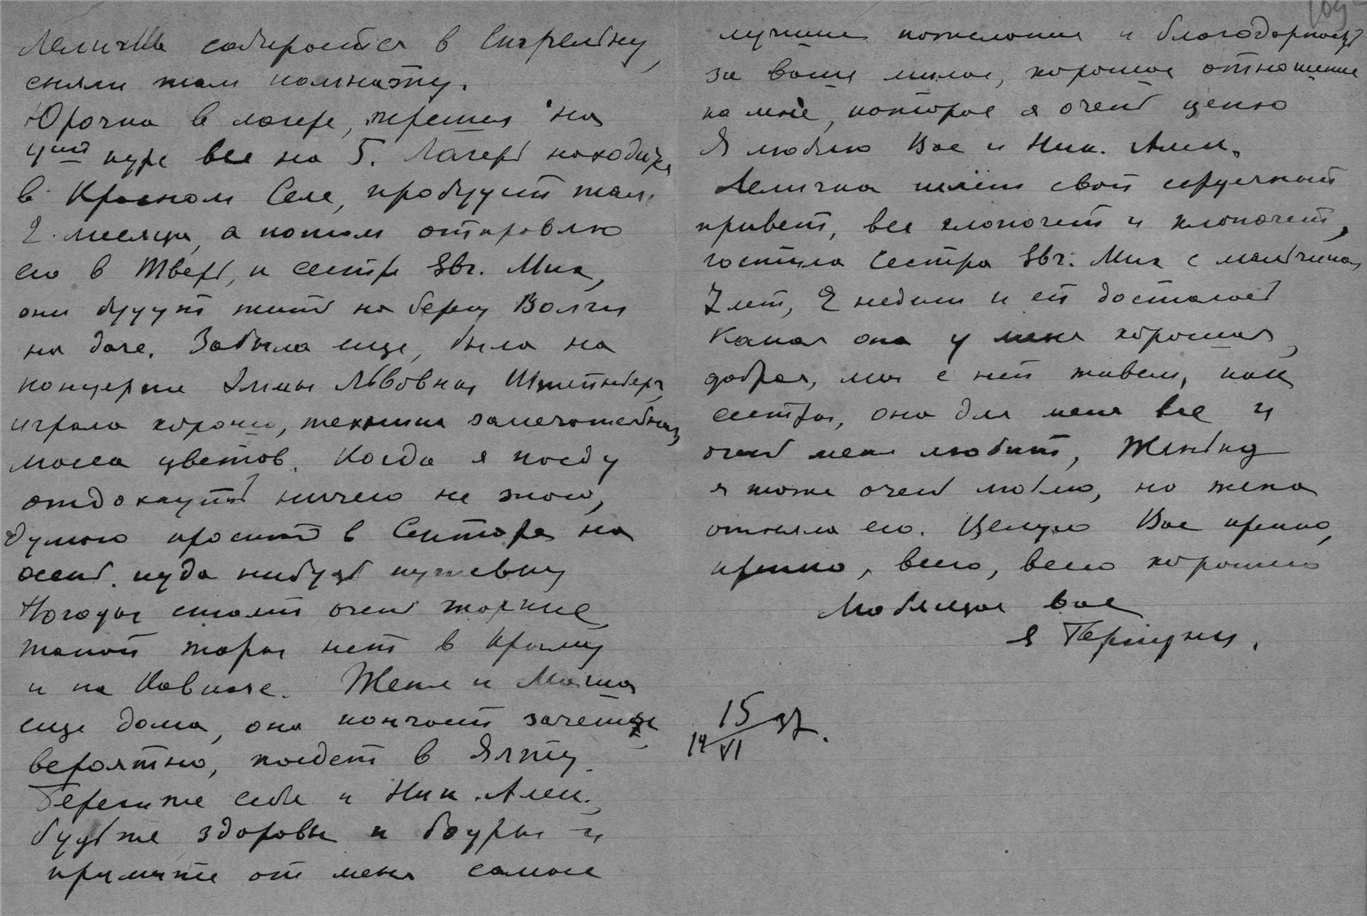 Лелична собирается в Стрельну,
сняли там комнату.
Юрочка в лагере, перешел на
4ый курс все на 5. Лагерь находится
в Красном Селе, пробудут там
2 месяца, а потом отправлю
его в Тверь, к сестре Евг. Мих,
они будут жить на берегу Волги
на даче. Забыла еще, была на
концерте Эммы Львовны Штейнберг,
играла хорошо, техника замечательная,
масса цветов. Когда я поеду
отдохнуть ничего не знаю,
думаю просить в Сентябре на
осень куда нибудь путевку
Погоды стоят очень жаркие,
такой жары нет в Крыму
и на Кавказе. Женя и Маша
еще дома, она кончает зачеты
вероятно, поедет в Ялту.
Берегите себя и Ник. Алек.,
будьте здоровы и бодры и
примите от меня самые
109
лучшие пожелания и благодарность
за ваше милое, хорошее отношение
ко мне, которое я очень ценю
Я люблю Вас и Ник. Алек.
Лелична шлет свой сердечный
привет, все хлопочет и хлопочет,
гостила Сестра Евг. Мих с мальчиком
7 лет, 2 недели и ей досталось
Какая она у меня хорошая,
добрая, мы с ней живем, как
сестры, она для меня все и
очень меня любит, Женьку
я тоже очень люблю, но жена
отняла его. Целую Вас крепко,
крепко, всего, всего хорошего
Любящая вас
я
15
14 VI 37.